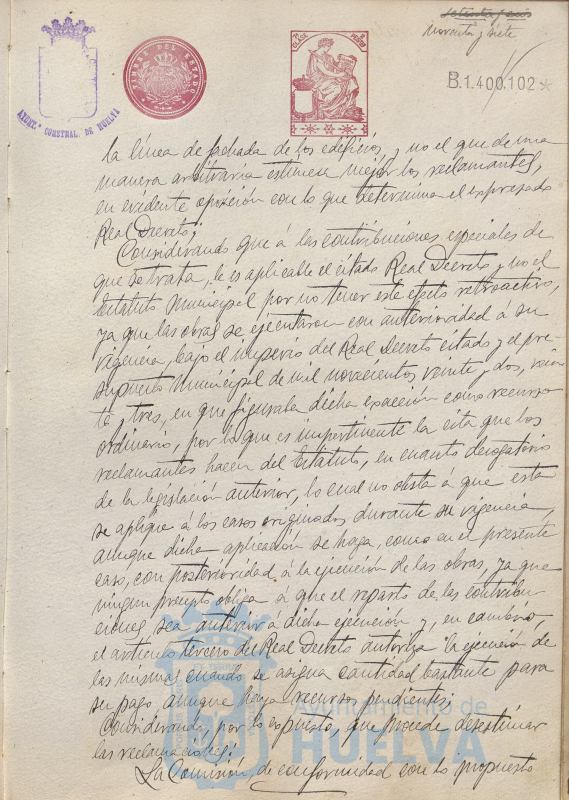 setenta y seis
noventa y siete
B.1.400.102
TIMBRE DEL ESTADO
AYUNT.º CONSTNAL. DE HUELVA
la línea de fachada de los edificios, y no el que de una
manera arbitraria estimen mejor los reclamantes,
en evidente oposición con lo que determina el expresado
Real Decreto;
Considerando que á las contribuciones especiales de
que se trata, le es aplicable el citado Real Decreto y no el
Estatuto Municipal por no tener este efecto retroactivo,
ya que las obras se ejecutaron con anterioridad á su
vigencia, bajo el imperio del Real Decreto citado y el pre-
supuesto Municipal de mil novecientos veinte y dos, vein
te y tres, en que figuraba dicha exacción como recurso
ordinario, por lo que es impertinente la cita que los
reclamantes hacen del Estatuto, en cuanto derogatorio
de la legislación anterior, lo cual no obsta á que esta
se aplique á los casos originados durante su vigencia,
aunque dicha aplicación se haga, como en el presente
caso, con posterioridad á la ejecución de las obras, ya que
ningun precepto obliga á que el reparto de las contribu-
ciones sea anterior á dicha ejecución y, en cambio,
el artículo tercero del Real Decreto autoriza la ejecución de
las mismas cuando se asigna cantidad bastante para
su pago, aunque haya recursos pendientes;
Considerando, por lo expuesto, que procede desestimar
las reclamaciones;
La Comisión, de conformidad con lo propuesto
Ayuntamiento de
HUELVA